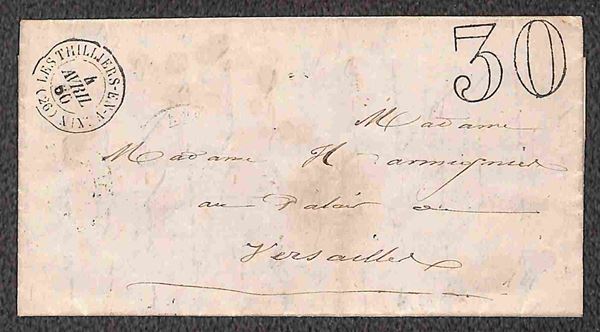 LES THILLIERS-EN-VEXIN (26)
4
AVRIL
60
30
Madame
Madame H
au Palais de
Versailles